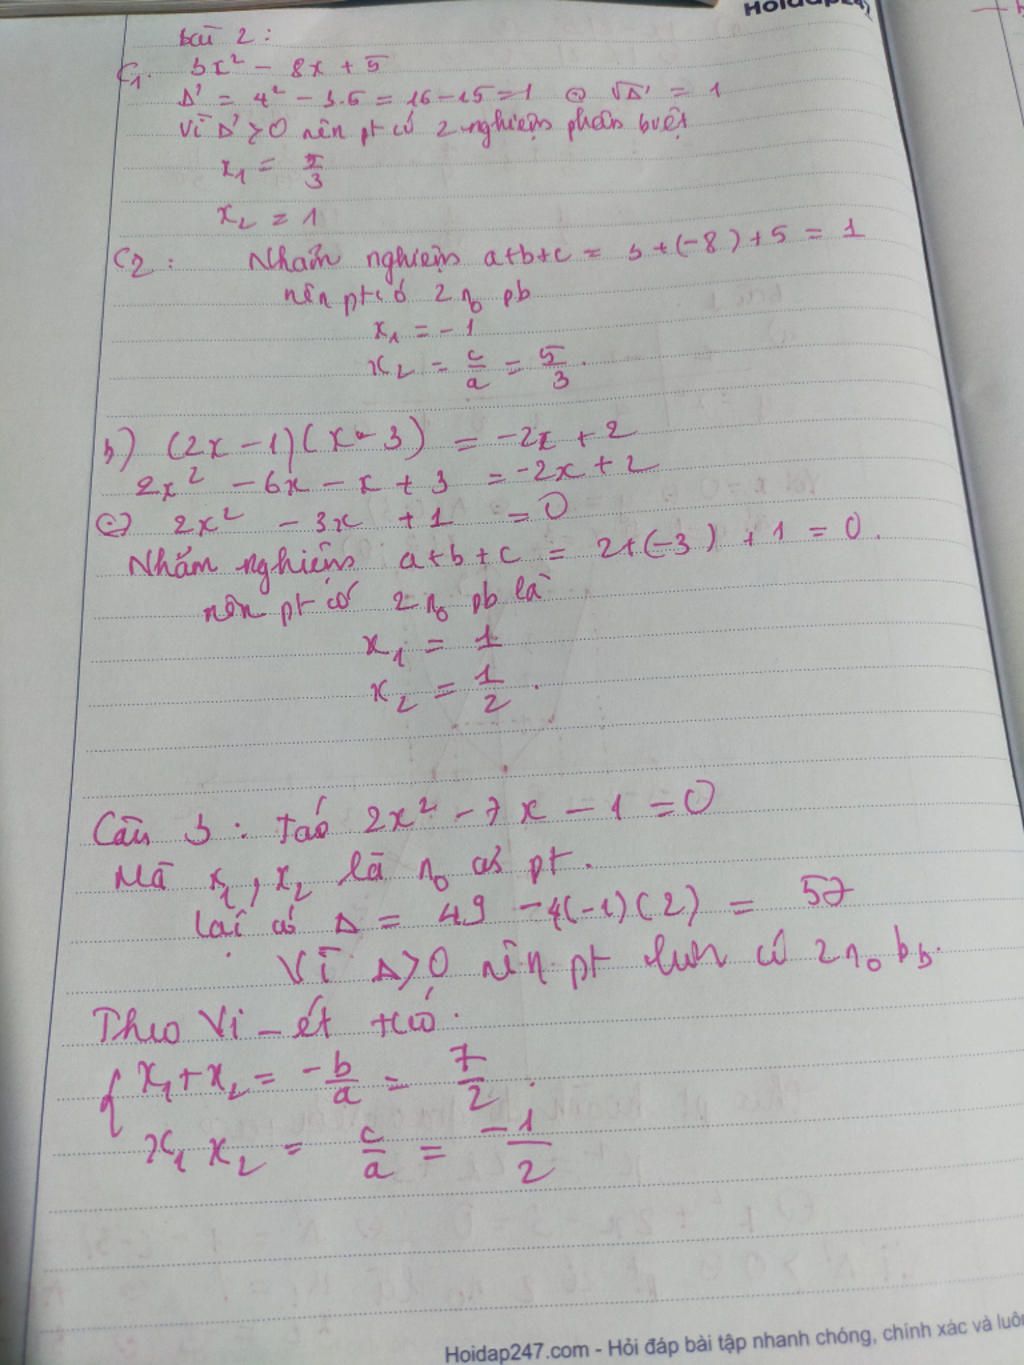 Hoidap247
bài 2 :
C1. 3x² - 8x + 5
Δ' = 4² - 3.5 = 16 - 15 = 1 √Δ' = 1
Vì Δ' > 0 nên pt có 2 nghiệm phân biệt
x₁ = 5/3
x₂ = 1
C2 : Nhẩm nghiệm a+b+c = 3+(-8)+5 = 1
nên pt có 2 n₀ pb
x₁ = -1
x₂ = c/a = 5/3.
b) (2x - 1)(x - 3) = -2x + 2
2x² - 6x - x + 3 = -2x + 2
⇔ 2x² - 3x + 1 = 0
Nhẩm nghiệm a+b+c = 2+(-3)+1 = 0.
nên pt có 2 n₀ pb là
x₁ = 1
x₂ = 1/2.
Câu 3 : ta có 2x² - 7x - 1 = 0
Mà x₁, x₂ là n₀ của pt.
lại có Δ = 49 - 4(-1)(2) = 57
Vì Δ>0 nên pt luôn có 2 n₀
Theo Vi-ét ta có.
{ x₁ + x₂ = -b/a = 7/2.
x₁ x₂ = c/a = -1/2
Hoidap247.com - Hỏi đáp bài tập nhanh chóng, chính xác và luôn